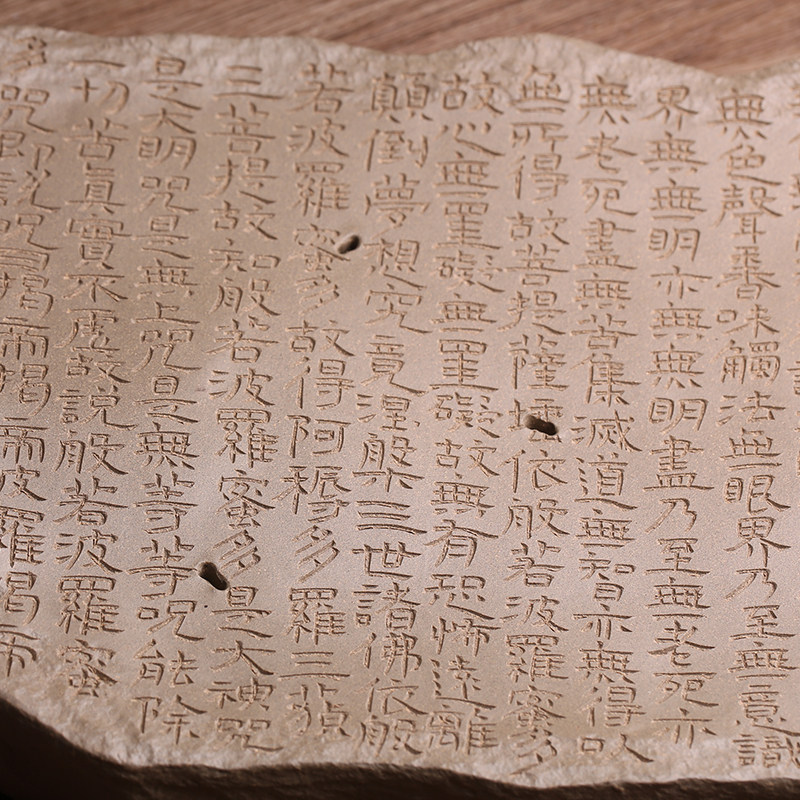 無色聲香味觸法無眼界乃至無意識
界無無明亦無無明盡乃至無老死亦
無老死盡無苦集滅道無知亦無得以
無所得故菩提薩埵依般若波羅蜜多
故心無罣礙無罣礙故無有恐怖遠離
顛倒夢想究竟涅槃三世諸佛依般
若波羅蜜多故得阿耨多羅三藐
三菩提故知般若波羅蜜多是大神咒
是大明咒是無上咒是無等等咒能除
一切苦真實不虛故說般若波羅蜜
多咒即說咒曰揭帝揭帝波羅揭帝